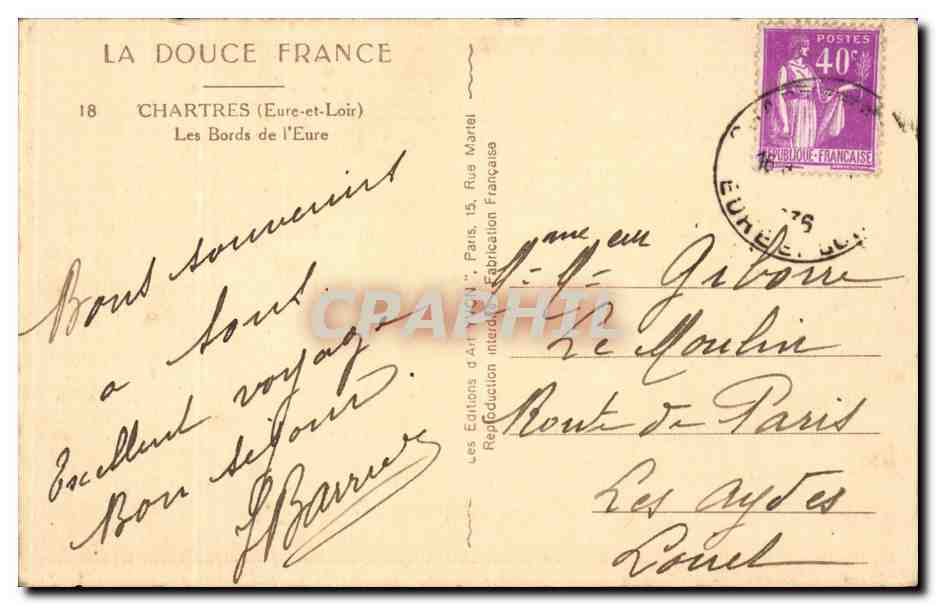 LA DOUCE FRANCE
18 CHARTRES (Eure-et-Loir)
Les Bords de l'Eure
Bons souvenirs
a tous.
Excellent voyage
Bon séjour
Les Editions d'Art "YVON", Paris, 15, Rue Martel
Reproduction interdite Fabrication Française
POSTES
40c
REPUBLIQUE-FRANCAISE
18
36
EURE-E
Le Moulin
Route de Paris
Les Aydes
Loiret
CPAPHIL